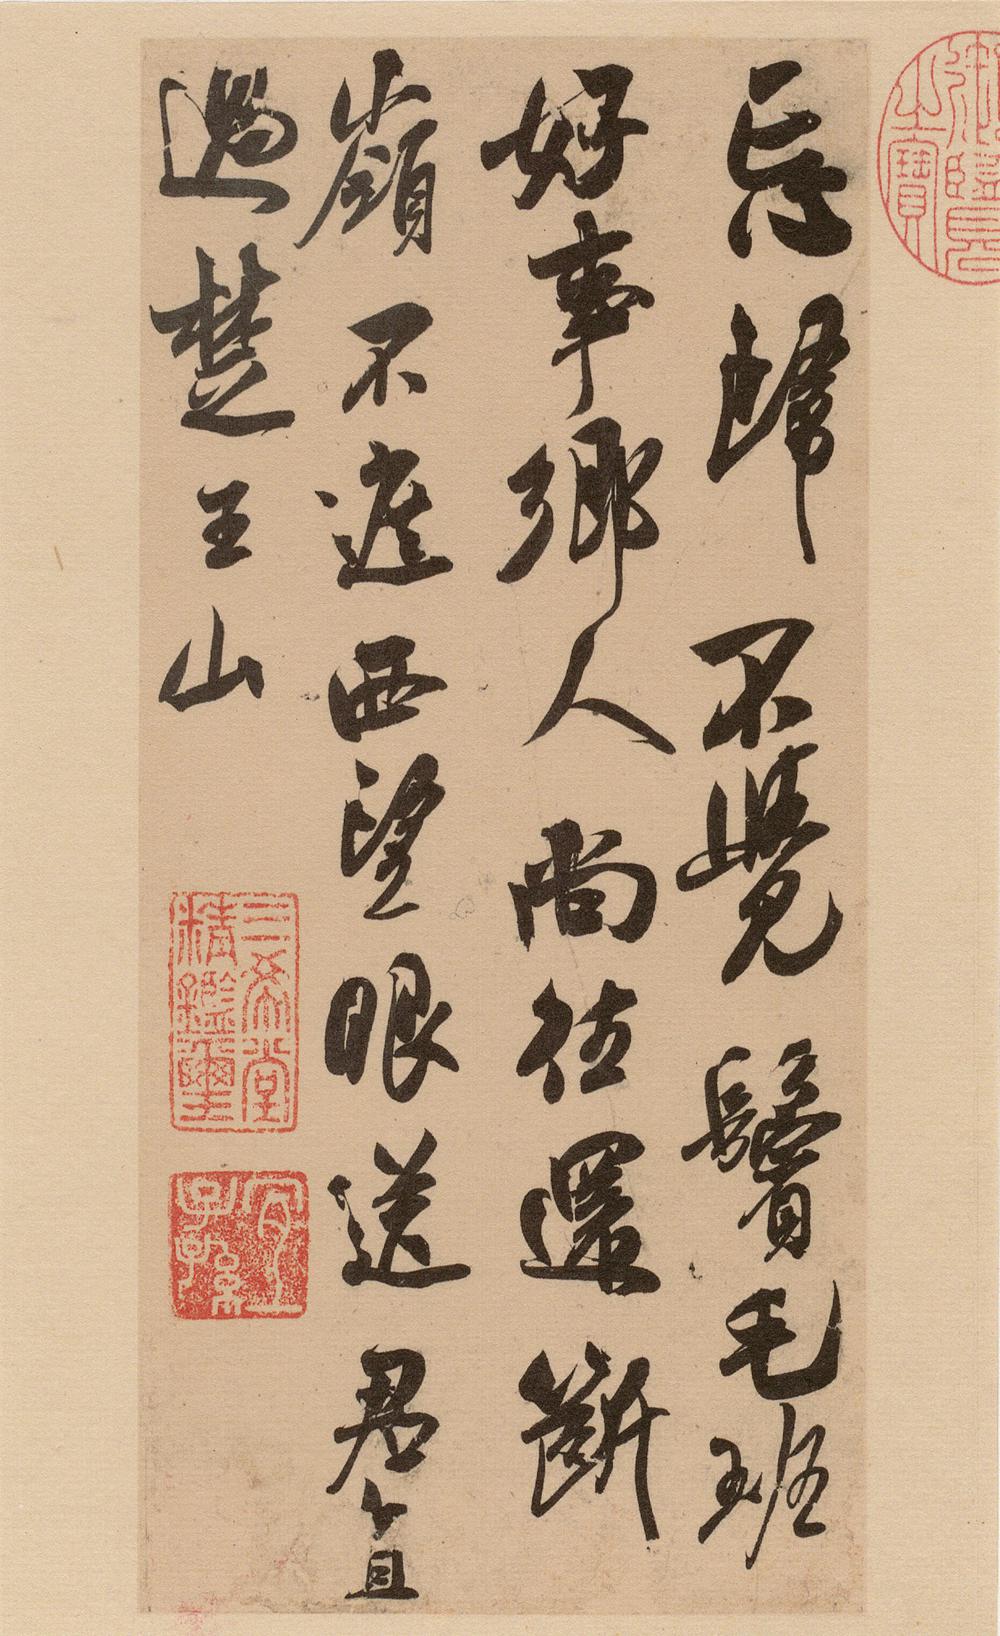 忘歸不覺鬢毛班
好事鄉人尚往還斷
嶺不遮西望眼送君直
過楚王山
御覽
之寶
三希堂
精鑑璽
宜
子孫